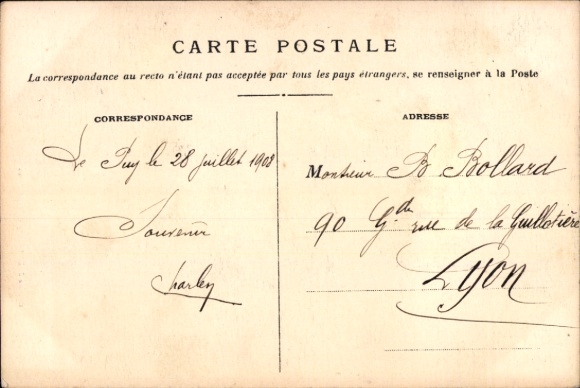 CARTE POSTALE
La correspondance au recto n'étant pas acceptée par tous les pays étrangers, se renseigner à la Poste
CORRESPONDANCE
Le Puy le 28 juillet 1908
Souvenir
Charley
ADRESSE
Monsieur B. Bollard
90 Gde rue de la Guillotière
Lyon